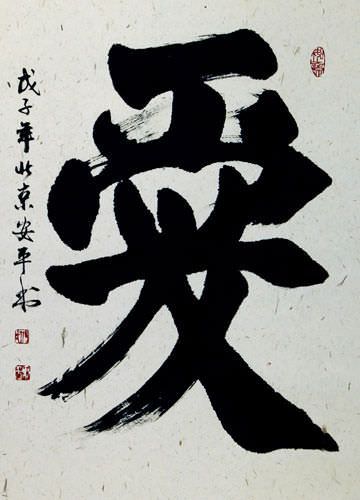 愛
戊子年北京安平书